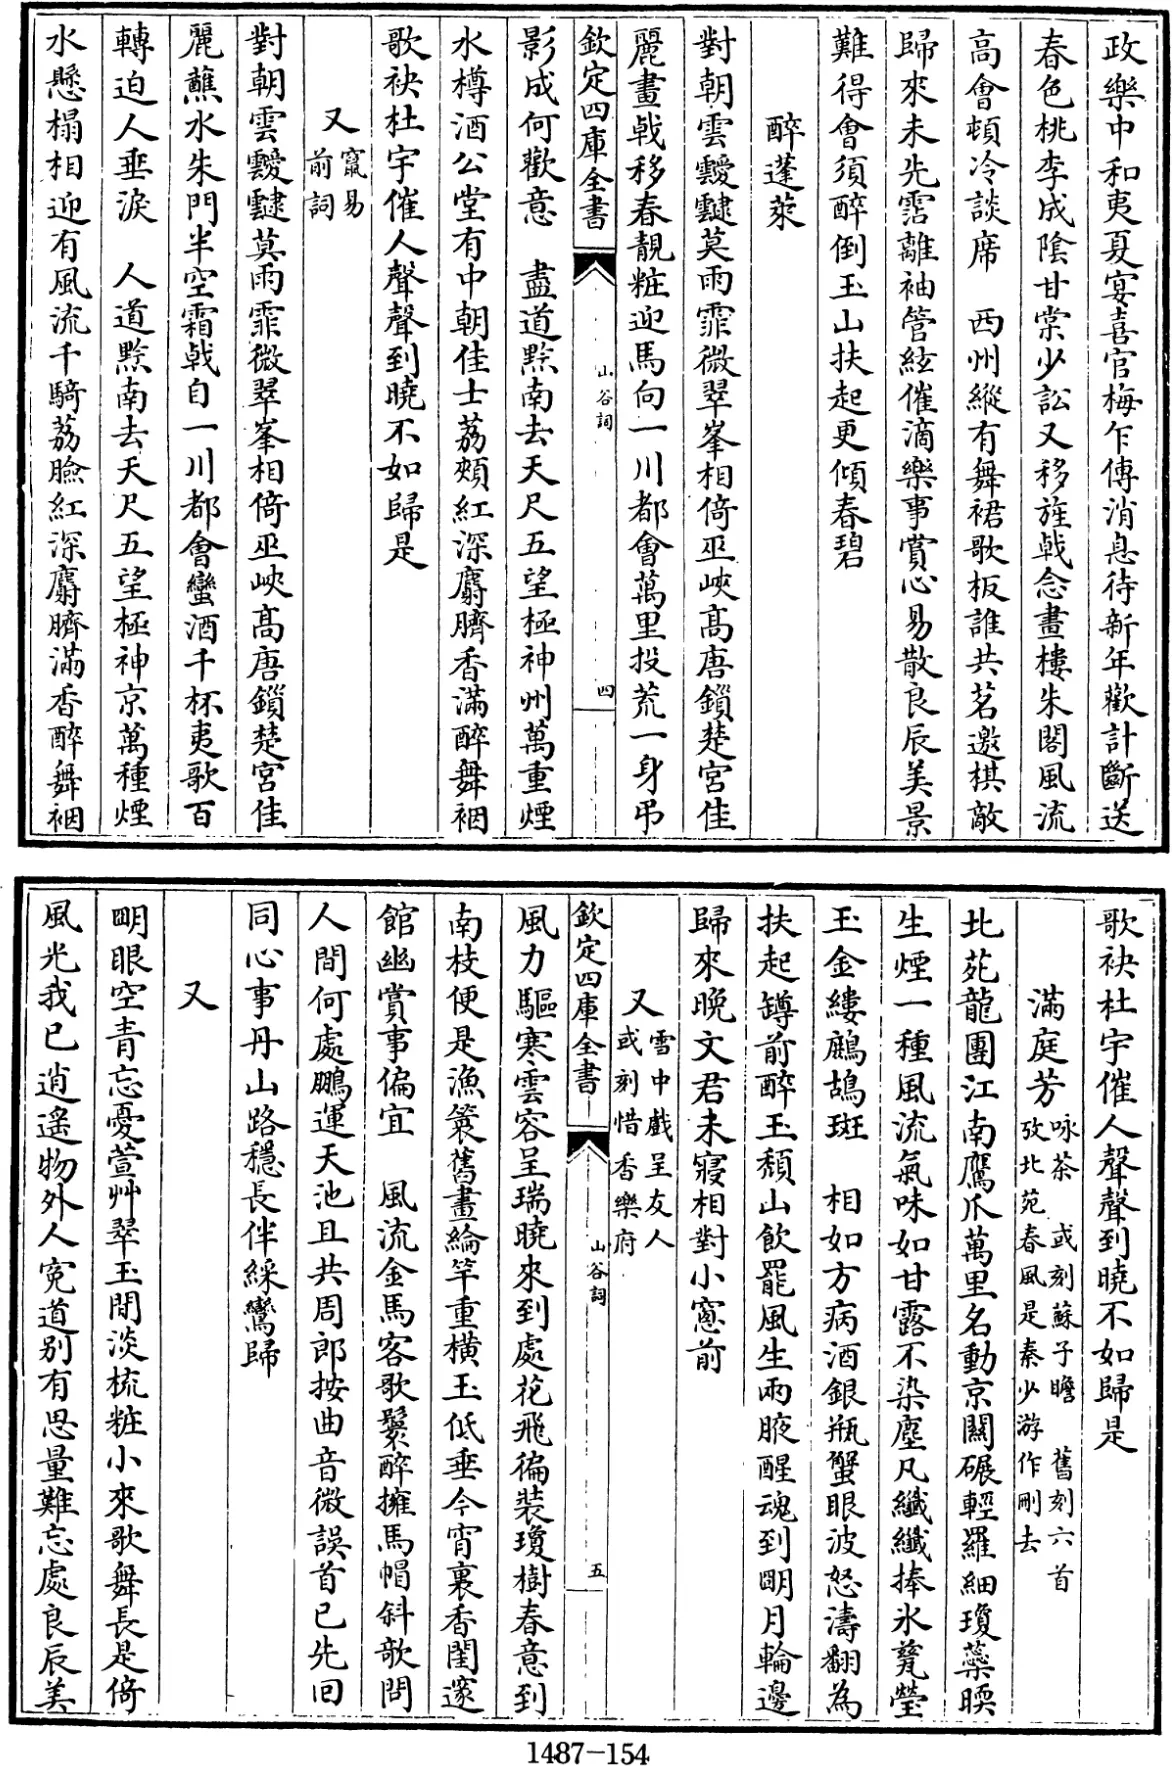 政樂中和夷夏宴喜官梅乍傳消息待新年歡計斷送
春色桃李成陰甘棠少訟又移旌戟念畫樓朱閣風流
高會頓冷談席　西州縱有舞裙歌板誰共茗邀棋敵
歸來未先霑離袖管絃催滴樂事賞心易散良辰美景
難得會須醉倒玉山扶起更傾春碧
醉蓬萊
對朝雲靉靆莫雨霏微翠峯相倚巫峽髙唐鎻楚宮佳
麗畫戟移春靚粧迎馬向一川都會萬里投荒一身弔
欽定四庫全書
山谷詞
四
影成何歡意　盡道黔南去天尺五望極神州萬重煙
水樽酒公堂有中朝佳士荔頰紅深麝臍香滿醉舞裀
歌袂杜宇催人聲聲到曉不如歸是
又竄易前詞
對朝雲靉靆莫雨霏微翠峯相倚巫峽髙唐鎻楚宮佳
麗蘸水朱門半空霜戟自一川都會蠻酒千杯夷歌百
轉迫人垂淚　人道黔南去天尺五望極神京萬種煙
水懸榻相迎有風流千騎荔臉紅深麝臍滿香醉舞裀
歌袂杜宇催人聲聲到曉不如歸是
滿庭芳咏茶　或刻蘇子瞻　舊刻六首攷北苑春風是秦少游作刪去
北苑龍團江南鷹爪萬里名動京關碾輕羅細瓊蘂暖
生煙一種風流氣味如甘露不染塵凡纖纖捧氷甆瑩
玉金縷鷓鴣斑　相如方病酒銀瓶蟹眼波怒濤翻為
扶起罇前醉玉頹山飲罷風生兩腋醒魂到明月輪邊
歸來晚文君未寢相對小窓前
又雪中戲呈友人或刻惜香樂府
欽定四庫全書
山谷詞
五
風力驅寒雲容呈瑞曉來到處花飛徧裝瓊樹春意到
南枝便是漁簑舊畫綸竿重橫玉低垂今宵裏香閨邃
館幽賞事偏宜　風流金馬客歌鬟醉擁馬帽斜歌問
人間何處鵬運天池且共周郎按曲音微誤首已先回
同心事丹山路穩長伴綵鸞歸
又
明眼空青忘憂萱艸翠玉閒淡梳粧小來歌舞長是倚
風光我已逍遙物外人寃道别有思量難忘處良辰美
1487-154